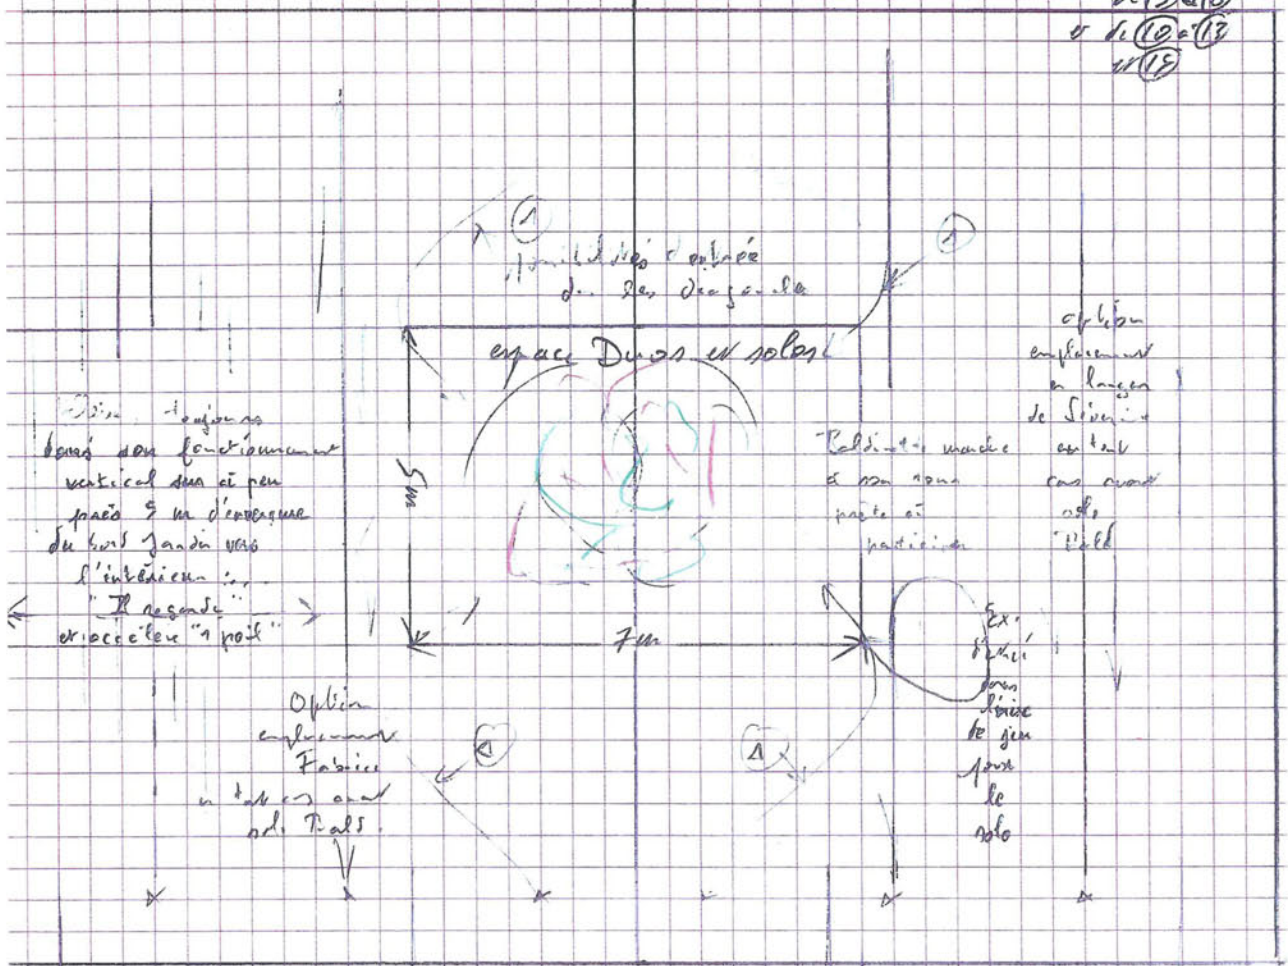 et de 10 à 13
et 15
1
possibilités d'entrée
1
espace Duos et solos
option
emplacement
en
de Séverine
en tout
cas avant
solo
Tald
toujours
dans son fonctionnement
vertical sur à peu
près 5 m d'envergure
du bord Jardin vers
l'intérieur :...
"Il regarde"
et accélère "1 poil"
5m
marche
à son
prête à
participer
7m
Ex.
dans
l'aire
de jeu
pour
le
solo
Option
emplacement
Fabrice
en tout cas avant
solo Tald.
1
1